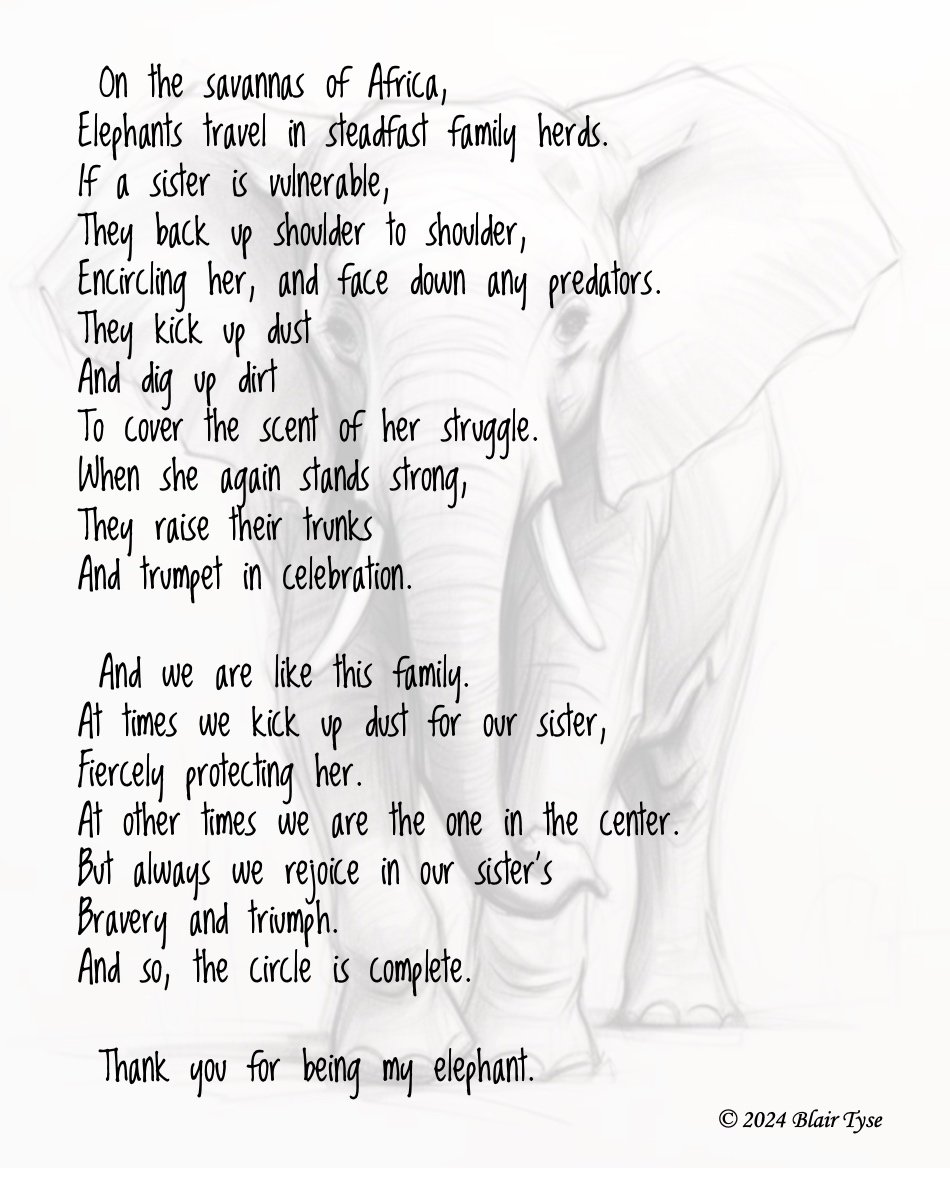 On the savannas of Africa,
Elephants travel in steadfast family herds.
If a sister is vulnerable,
They back up shoulder to shoulder,
Encircling her, and face down any predators.
They kick up dust
And dig up dirt
To cover the scent of her struggle.
When she again stands strong,
They raise their trunks
And trumpet in celebration.
And we are like this family.
At times we kick up dust for our sister,
Fiercely protecting her.
At other times we are the one in the center.
But always we rejoice in our sister's
Bravery and triumph.
And so, the circle is complete.
Thank you for being my elephant.
© 2024 Blair Tyse